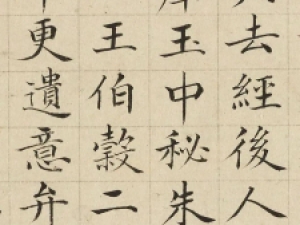 去經後人
玉中秘朱
王伯穀二
更遺意弁